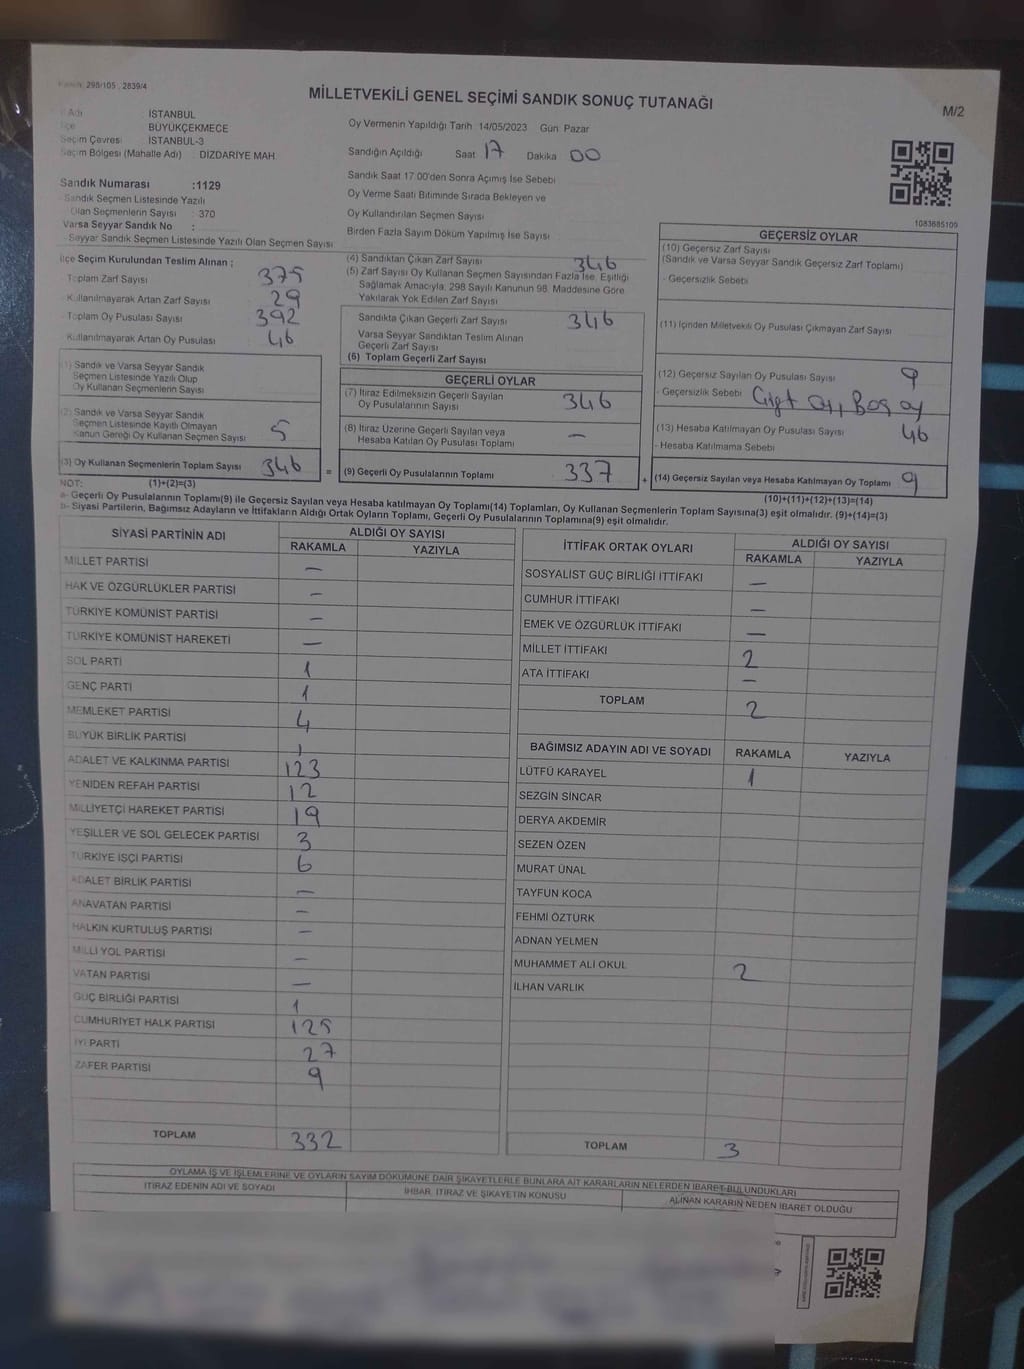 298/105 , 2839/4
MİLLETVEKİLİ GENEL SEÇİMİ SANDIK SONUÇ TUTANAĞI
M/2
Adı : İSTANBUL
BÜYÜKÇEKMECE
Seçim Çevresi : İSTANBUL-3
Seçim Bölgesi (Mahalle Adı) : DİZDARİYE MAH.
Oy Vermenin Yapıldığı Tarih 14/05/2023 Gün Pazar
Sandığın Açıldığı Saat 17 Dakika 00
Sandık Saat 17:00'den Sonra Açımış İse Sebebi
Oy Verme Saati Bitiminde Sırada Bekleyen ve
Oy Kullandırılan Seçmen Sayısı
Birden Fazla Sayım Döküm Yapılmış İse Sayısı
Sandık Numarası :1129
Sandık Seçmen Listesinde Yazılı
Olan Seçmenlerin Sayısı : 370
Varsa Seyyar Sandık No :
Seyyar Sandık Seçmen Listesinde Yazılı Olan Seçmen Sayısı
1083685109
İlçe Seçim Kurulundan Teslim Alınan ;
Toplam Zarf Sayısı 375
Kullanılmayarak Artan Zarf Sayısı 29
Toplam Oy Pusulası Sayısı 392
Kullanılmayarak Artan Oy Pusulası 46
(1) Sandık ve Varsa Seyyar Sandık
Seçmen Listesinde Yazılı Olup
Oy Kullanan Seçmenlerin Sayısı
(2) Sandık ve Varsa Seyyar Sandık
Seçmen Listesinde Kayıtlı Olmayan
Kanun Gereği Oy Kullanan Seçmen Sayısı 5
(3) Oy Kullanan Seçmenlerin Toplam Sayısı 346 =
(4) Sandıktan Çıkan Zarf Sayısı 346
(5) Zarf Sayısı Oy Kullanan Seçmen Sayısından Fazla İse, Eşitliği
Sağlamak Amacıyla, 298 Sayılı Kanunun 98. Maddesine Göre
Yakılarak Yok Edilen Zarf Sayısı
Sandıkta Çıkan Geçerli Zarf Sayısı 346
Varsa Seyyar Sandıktan Teslim Alınan
Geçerli Zarf Sayısı
(6) Toplam Geçerli Zarf Sayısı
GEÇERLİ OYLAR
(7) İtiraz Edilmeksizin Geçerli Sayılan
Oy Pusulalarının Sayısı 346
(8) İtiraz Üzerine Geçerli Sayılan veya
Hesaba Katılan Oy Pusulası Toplamı —
(9) Geçerli Oy Pusulalarının Toplamı 337 +
GEÇERSİZ OYLAR
(10) Geçersiz Zarf Sayısı
(Sandık ve Varsa Seyyar Sandık Geçersiz Zarf Toplamı)
- Geçersizlik Sebebi
(11) İçinden Milletvekili Oy Pusulası Çıkmayan Zarf Sayısı
(12) Geçersiz Sayılan Oy Pusulası Sayısı 9
- Geçersizlik Sebebi Çift oy, Boş oy
(13) Hesaba Katılmayan Oy Pusulası Sayısı 46
- Hesaba Katılmama Sebebi
(14) Geçersiz Sayılan veya Hesaba Katılmayan Oy Toplamı 9
NOT: (1)+(2)=(3)
(10)+(11)+(12)+(13)=(14)
a- Geçerli Oy Pusulalarının Toplamı(9) ile Geçersiz Sayılan veya Hesaba katılmayan Oy Toplamı(14) Toplamları, Oy Kullanan Seçmenlerin Toplam Sayısına(3) eşit olmalıdır. (9)+(14)=(3)
b- Siyasi Partilerin, Bağımsız Adayların ve İttifakların Aldığı Ortak Oyların Toplamı, Geçerli Oy Pusulalarının Toplamına(9) eşit olmalıdır.
SİYASİ PARTİNİN ADI ALDIĞI OY SAYISI
RAKAMLA YAZIYLA
MİLLET PARTİSİ —
HAK VE ÖZGÜRLÜKLER PARTİSİ —
TÜRKİYE KOMÜNİST PARTİSİ —
TÜRKİYE KOMÜNİST HAREKETİ —
SOL PARTİ 1
GENÇ PARTİ 1
MEMLEKET PARTİSİ 4
BÜYÜK BİRLİK PARTİSİ 1
ADALET VE KALKINMA PARTİSİ 123
YENİDEN REFAH PARTİSİ 12
MİLLİYETÇİ HAREKET PARTİSİ 19
YEŞİLLER VE SOL GELECEK PARTİSİ 3
TÜRKİYE İŞÇİ PARTİSİ 6
ADALET BİRLİK PARTİSİ —
ANAVATAN PARTİSİ —
HALKIN KURTULUŞ PARTİSİ —
MİLLİ YOL PARTİSİ —
VATAN PARTİSİ —
GÜÇ BİRLİĞİ PARTİSİ 1
CUMHURİYET HALK PARTİSİ 125
İYİ PARTİ 27
ZAFER PARTİSİ 9
TOPLAM 332
İTTİFAK ORTAK OYLARI ALDIĞI OY SAYISI
RAKAMLA YAZIYLA
SOSYALİST GÜÇ BİRLİĞİ İTTİFAKI —
CUMHUR İTTİFAKI —
EMEK VE ÖZGÜRLÜK İTTİFAKI —
MİLLET İTTİFAKI 2
ATA İTTİFAKI —
TOPLAM 2
BAĞIMSIZ ADAYIN ADI VE SOYADI RAKAMLA YAZIYLA
LÜTFÜ KARAYEL 1
SEZGİN SİNCAR
DERYA AKDEMİR
SEZEN ÖZEN
MURAT ÜNAL
TAYFUN KOCA
FEHMİ ÖZTÜRK
ADNAN YELMEN
MUHAMMET ALİ OKUL 2
İLHAN VARLIK
TOPLAM 3
OYLAMA İŞ VE İŞLEMLERİNE VE OYLARIN SAYIM DÖKÜMÜNE DAİR ŞİKAYETLERLE BUNLARA AİT KARARLARIN NELERDEN İBARET BULUNDUKLARI
İTİRAZ EDENİN ADI VE SOYADI İHBAR, İTİRAZ VE ŞİKAYETİN KONUSU ALINAN KARARIN NEDEN İBARET OLDUĞU